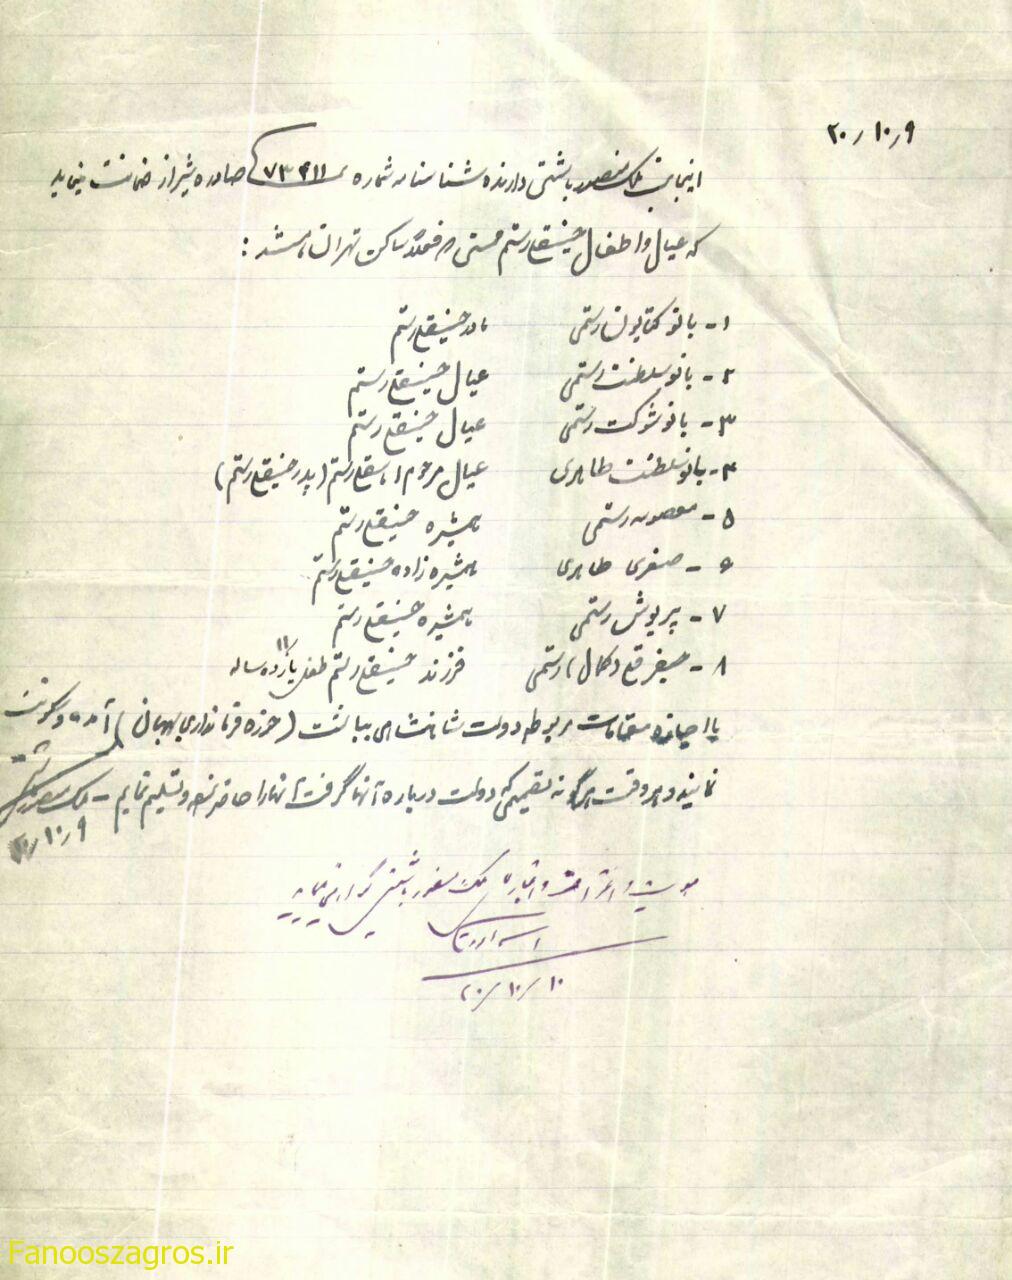 ۲۰ر۱۰ر۹
اینجانب ملک منصور باشتی دارنده شناسنامه شماره ۷۳۴۱۱ صادره شیراز ضمانت مینماید
که عیال و اطفال حسینقلی رستم ساکن تهران میباشند :
۱- بانو کتایون رستمی مادر حسینقلی رستم
۲- بانو سلطنت رستمی عیال حسینقلی رستم
۳- بانو شوکت رستمی عیال حسینقلی رستم
۴- بانو سلطنت طاهری عیال مرحوم امامقلی رستم (پدر حسینقلی رستم)
۵- معصومه رستمی همشیره حسینقلی رستم
۶- صغری طاهری همشیره زاده حسینقلی رستم
۷- پریوش رستمی همشیره حسینقلی رستم
۸- جعفرقلی (کمال) رستمی فرزند حسینقلی رستم طفل یازده ساله ۱۱
با اجازه مقامات مربوطه دولت شاهنشاهی بباشت (حوزه فرمانداری بهبهان) آمده و سکونت
نمایند و هر وقت هرگونه تصمیمی که دولت درباره آنها گرفت آنها را حاضر نموده و تسلیم نمایم - ملک منصور باشتی
۲۰ر۱۰ر۹
هویت و اعتبار ملک منصور باشتی گواهی مینماید
۲۰/۱۰/۱۰
Fanooszagros.ir